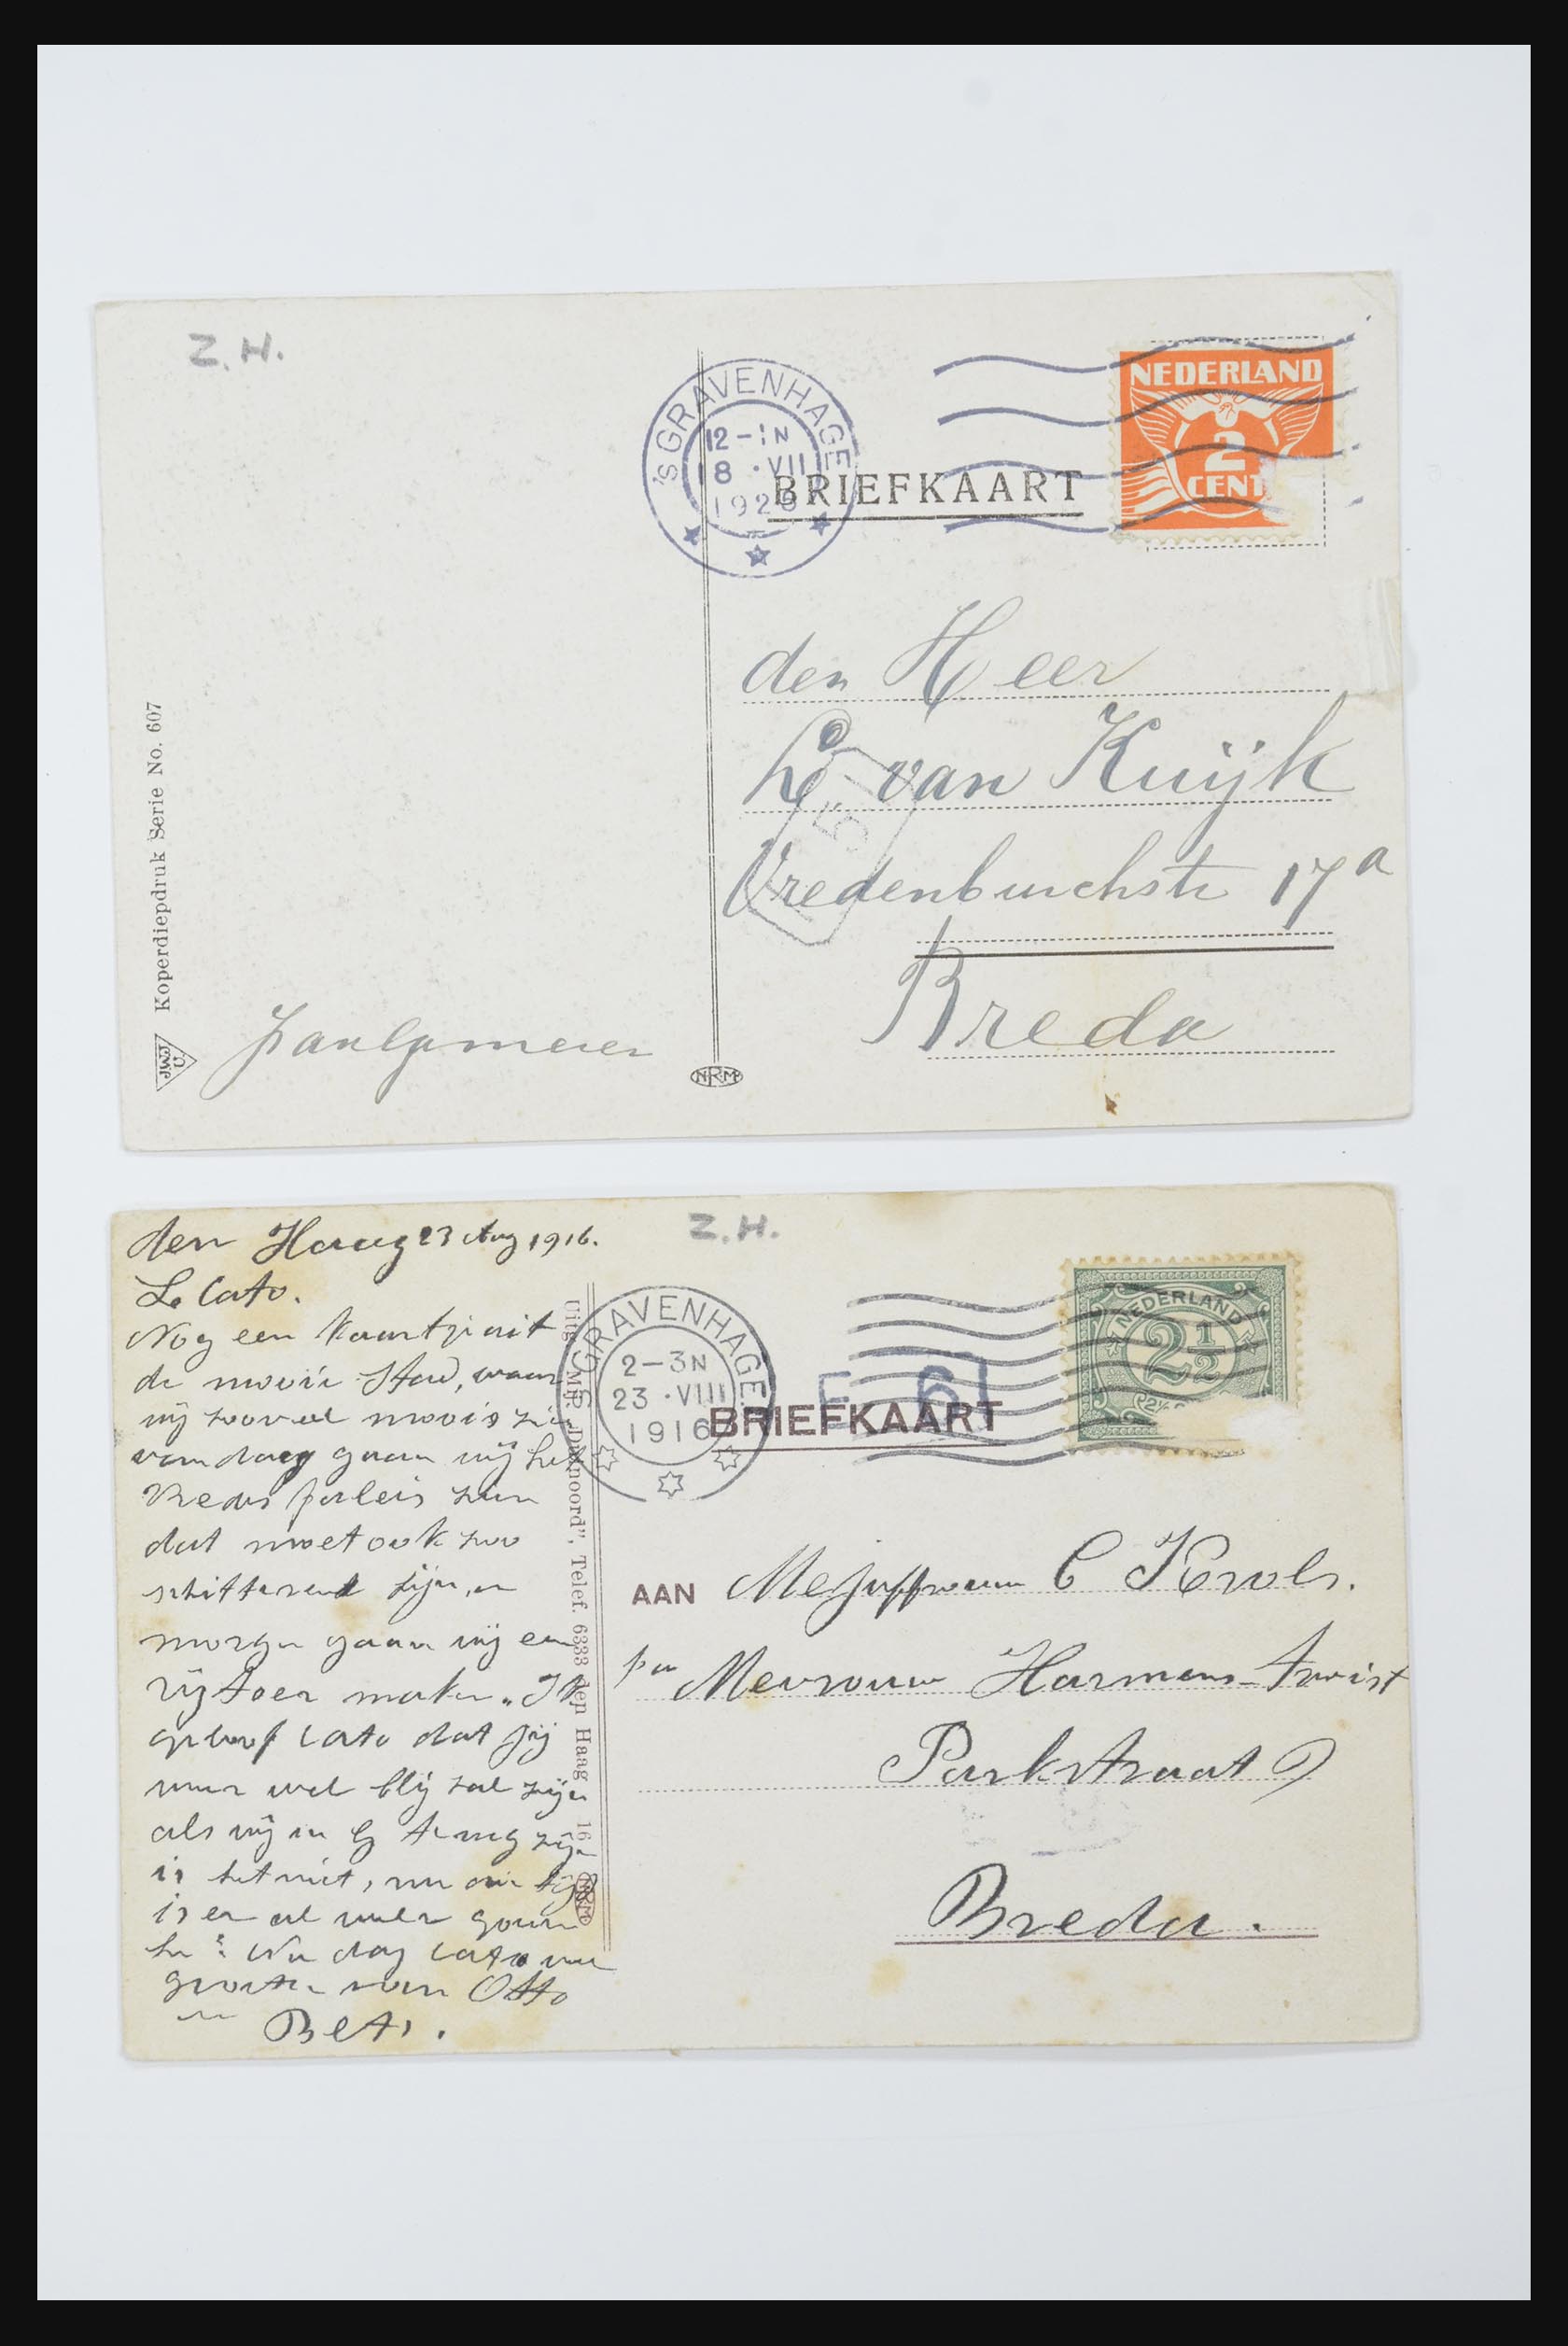 Z.H.
'S GRAVENHAGE
12-1N
18 ·VII
192
BRIEFKAART
NEDERLAND
2
CENT
den Heer
van Kuijk
Vredenburchstr 17a
Breda
Koperdiepdruk Serie No. 607
CMP
NRM
Z.H.
den Haag 23 Aug 1916.
L. Cato.
Nog een kaartje uit
de mooie Stad, waar
wij zooveel moois zien
vandaag gaan wij het
Vredes paleis zien
dat moet ook zoo
schitterend zijn, en
morgen gaan wij een
rijtoer maken. Ik
geloof Cato dat jij
maar wel blij zal zijn
als wij in G terug zijn
is het niet, nu die tijd
is er al weer gauw
he? Nu dag Cato
groeten van Otto
en Bets.
'S GRAVENHAGE
2-3N
23 ·VIII
1916
BRIEFKAART
E 61
NEDERLAND
2½
Telef. 6333 den Haag 16
NRM
AAN Mejuffrouw C Krols.
p/a Mevrouw Harmens-Twist
Parkstraat 9
Breda.